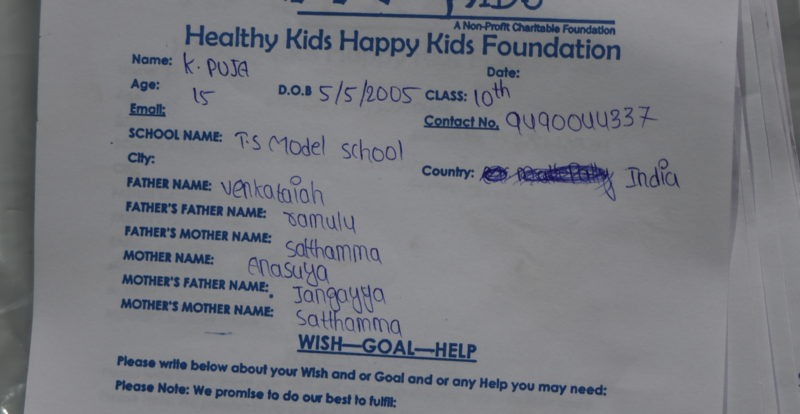 A Non-Profit Charitable Foundation
Healthy Kids Happy Kids Foundation
Name: K. PUJA Date:
Age: 15 D.O.B 5/5/2005 CLASS: 10th
Email: Contact No. 9490044337
SCHOOL NAME: T.S Model school
City: Country: India
FATHER NAME: venkataiah
FATHER'S FATHER NAME: ramulu
FATHER'S MOTHER NAME: satthamma
MOTHER NAME: Anasuya
MOTHER'S FATHER NAME: Jangayya
MOTHER'S MOTHER NAME: Satthamma
WISH—GOAL—HELP
Please write below about your Wish and or Goal and or any Help you may need:
Please Note: We promise to do our best to fulfil: